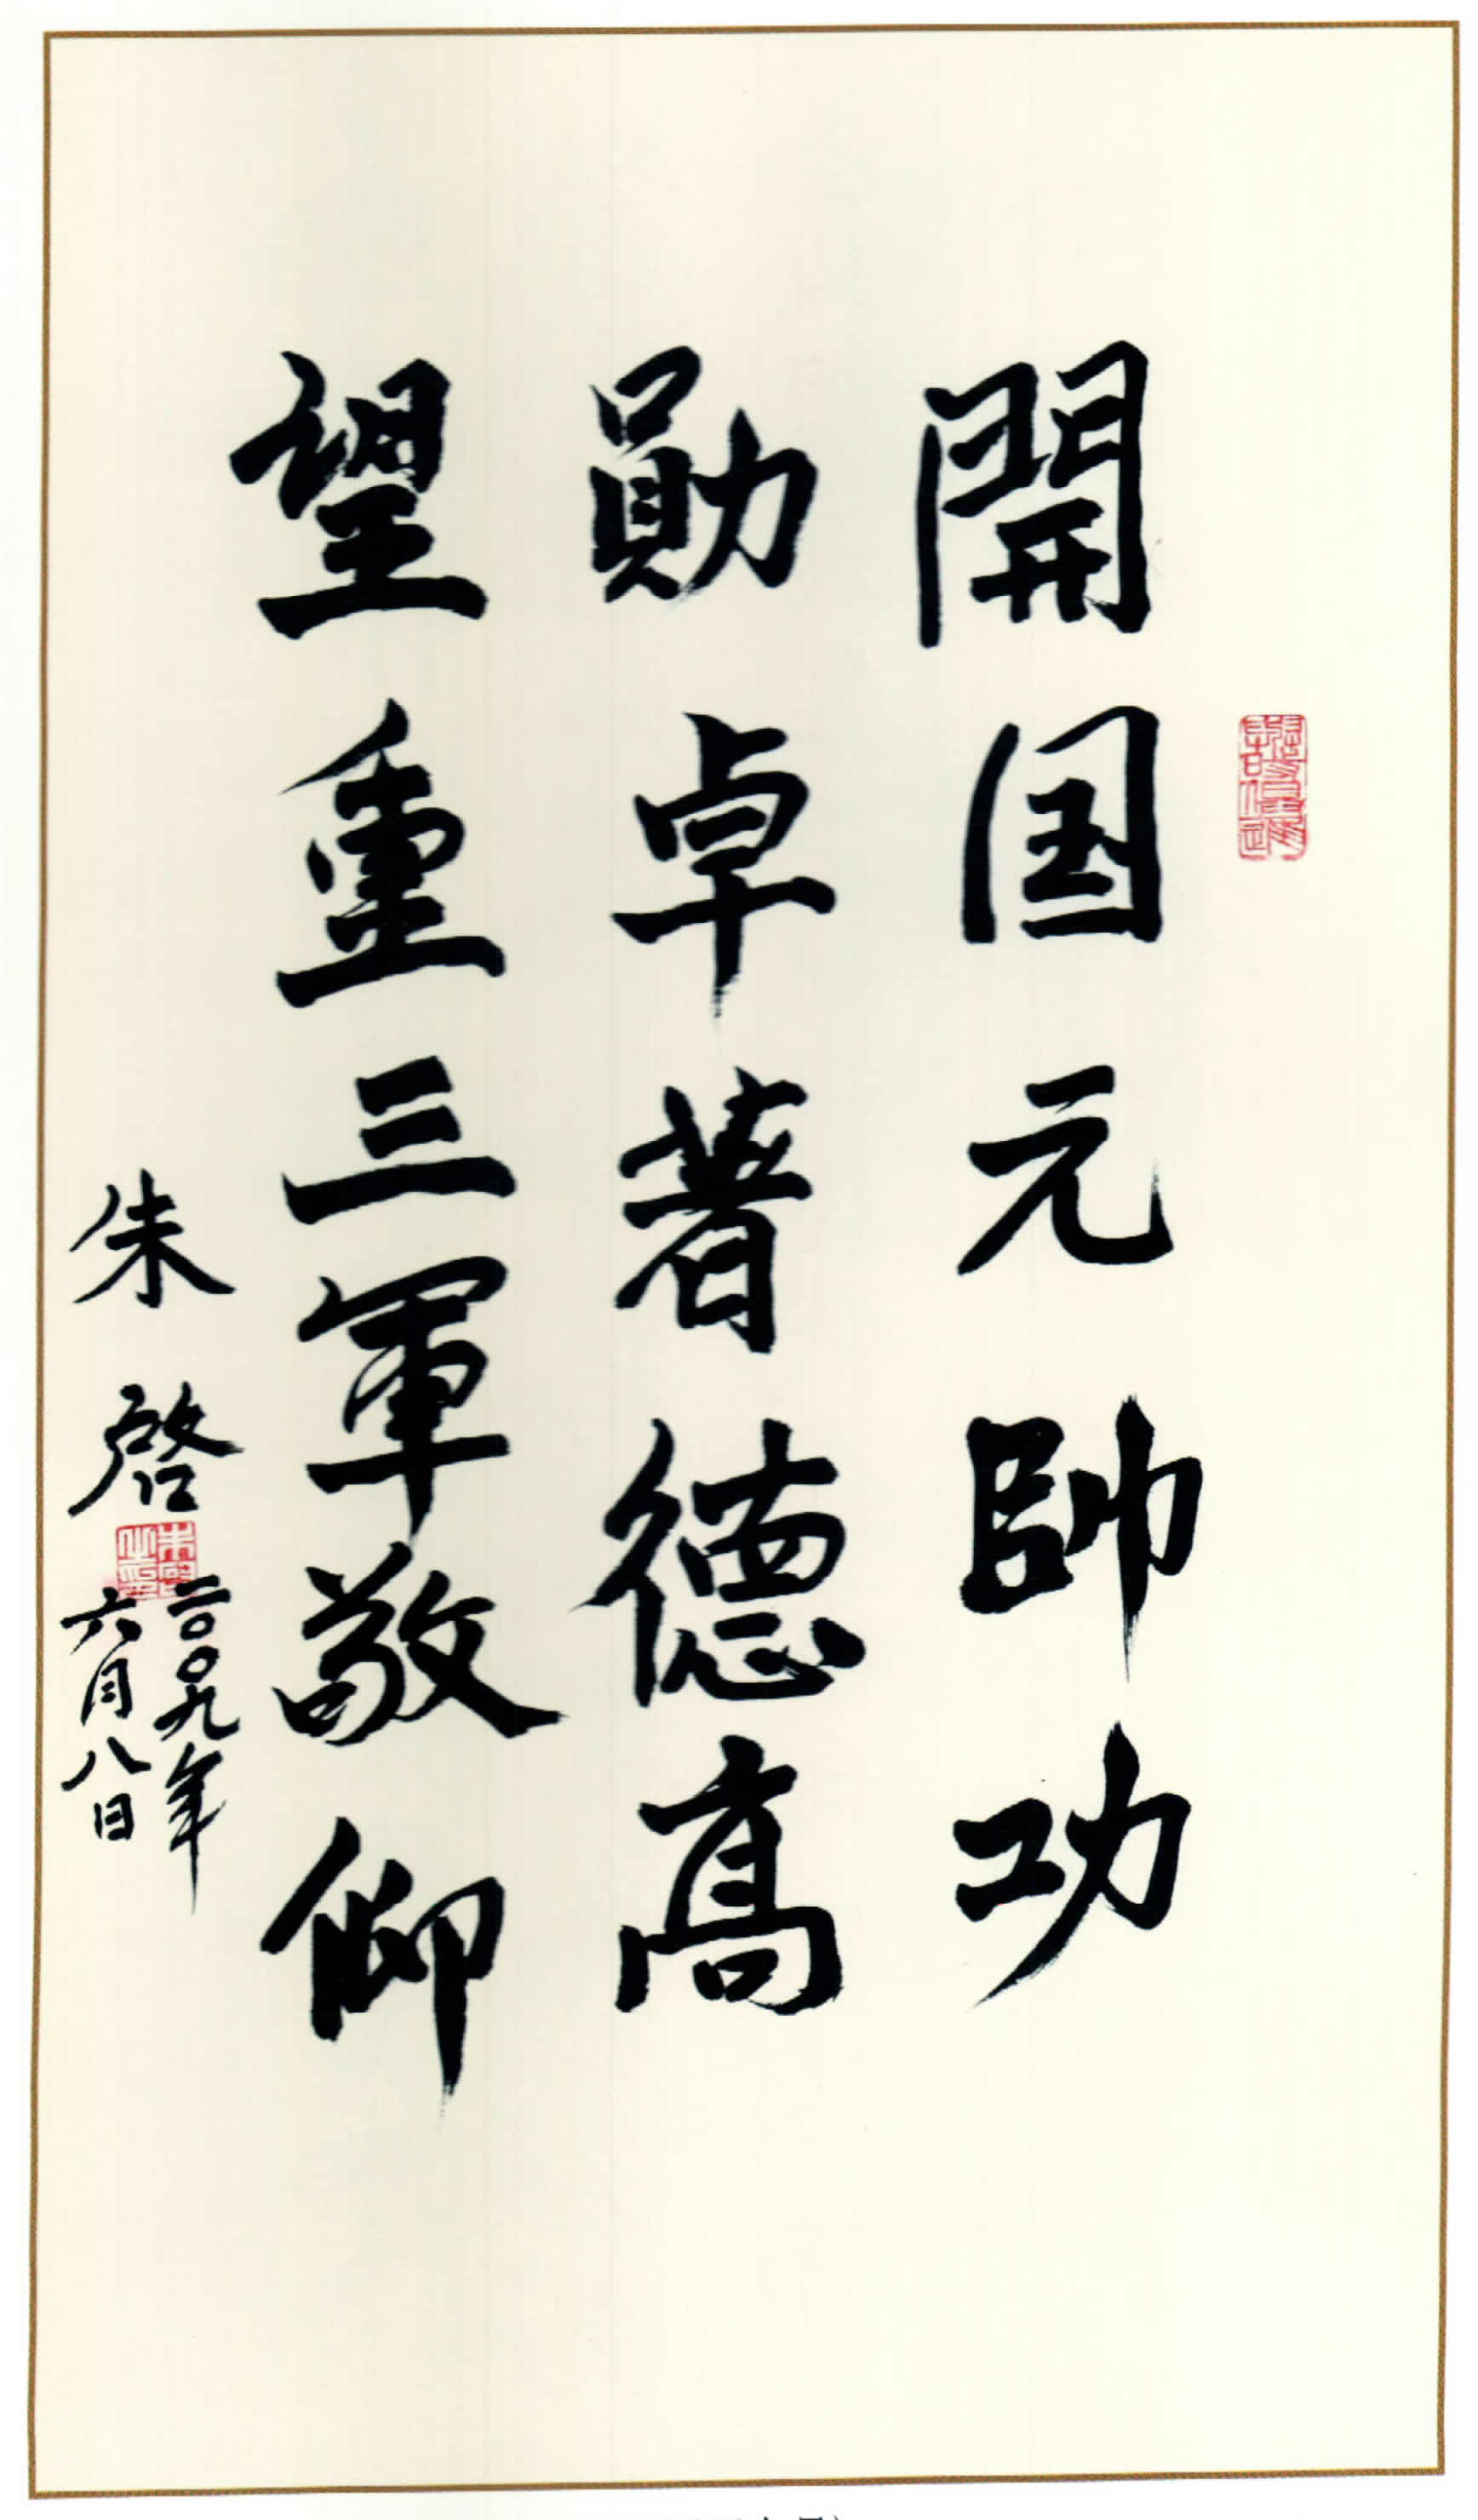 開国元帥功
勛卓著德高
望重三軍敬仰
朱啓
二〇〇九年
六月八日